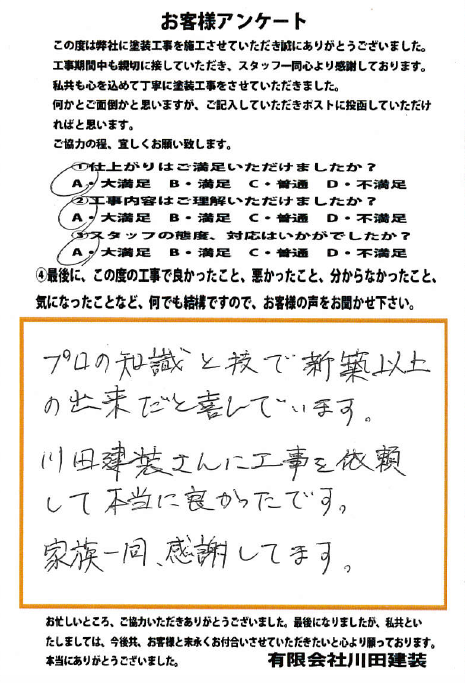 お客様アンケート
この度は弊社に塗装工事を施工させていただき誠にありがとうございました。
工事期間中も親切に接していただき、スタッフ一同心より感謝しております。
私共も心を込めて丁寧に塗装工事をさせていただきました。
何かとご面倒かと思いますが、ご記入していただきポストに投函していただけ
ればと思います。
ご協力の程、宜しくお願い致します。
①仕上がりはご満足いただけましたか？
A・大満足 B・満足 C・普通 D・不満足
②工事内容はご理解いただけましたか？
A・大満足 B・満足 C・普通 D・不満足
③スタッフの態度、対応はいかがでしたか？
A・大満足 B・満足 C・普通 D・不満足
④最後に、この度の工事で良かったこと、悪かったこと、分からなかったこと、
気になったことなど、何でも結構ですので、お客様の声をお聞かせ下さい。
プロの知識と技で新築以上
の出来だと喜んでいます。
川田建装さんに工事を依頼
して本当に良かったです。
家族一同、感謝してます。
お忙しいところ、ご協力いただきありがとうございました。最後になりましたが、私共とい
たしましては、今後共、お客様と末永くお付合いさせていただきたいと心より願っております。
本当にありがとうございました。 有限会社川田建装